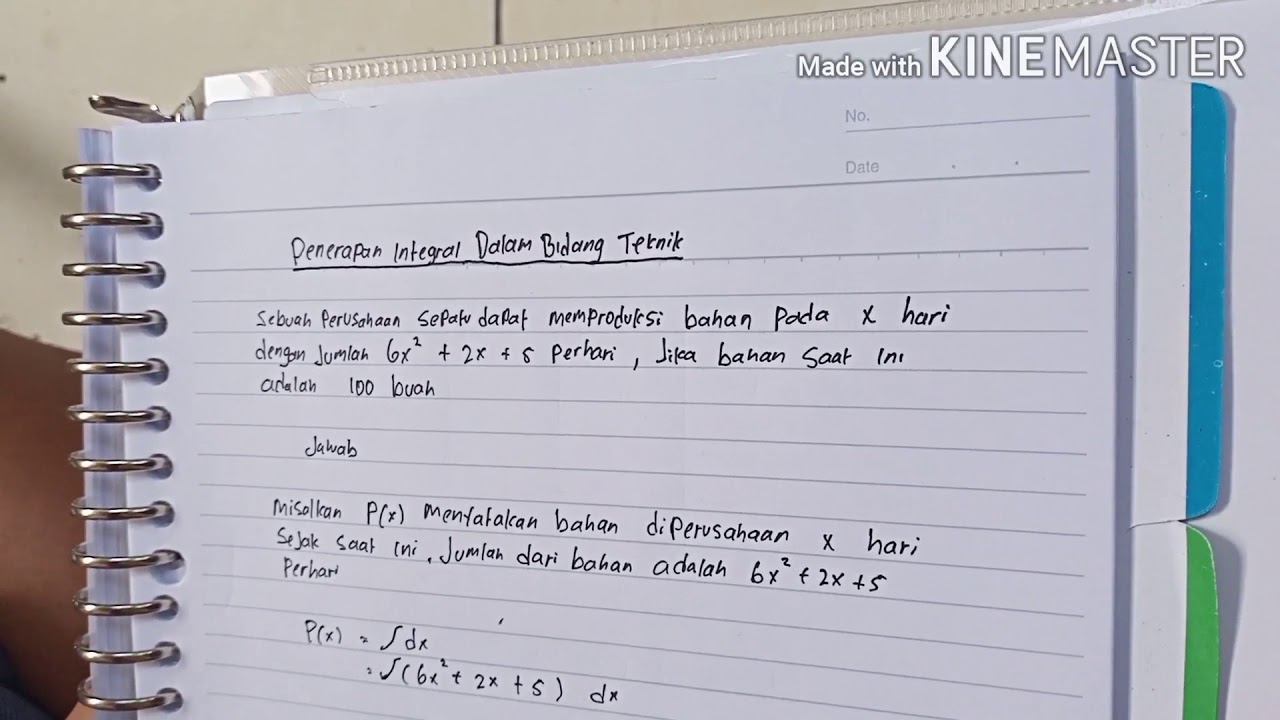 Made with KINEMASTER
No.
Date
Penerapan Integral Dalam Bidang Teknik
Sebuah Perusahaan Sepatu dapat memproduksi bahan pada x hari
dengan Jumlah 6x² + 2x + 5 Perhari, Jika bahan Saat Ini
adalah 100 buah
Jawab
Misalkan P(x) menyatakan bahan diperusahaan x hari
Sejak saat ini. Jumlah dari bahan adalah 6x² + 2x + 5
Perhari
P(x) = ∫ dx
= ∫(6x² + 2x + 5) dx